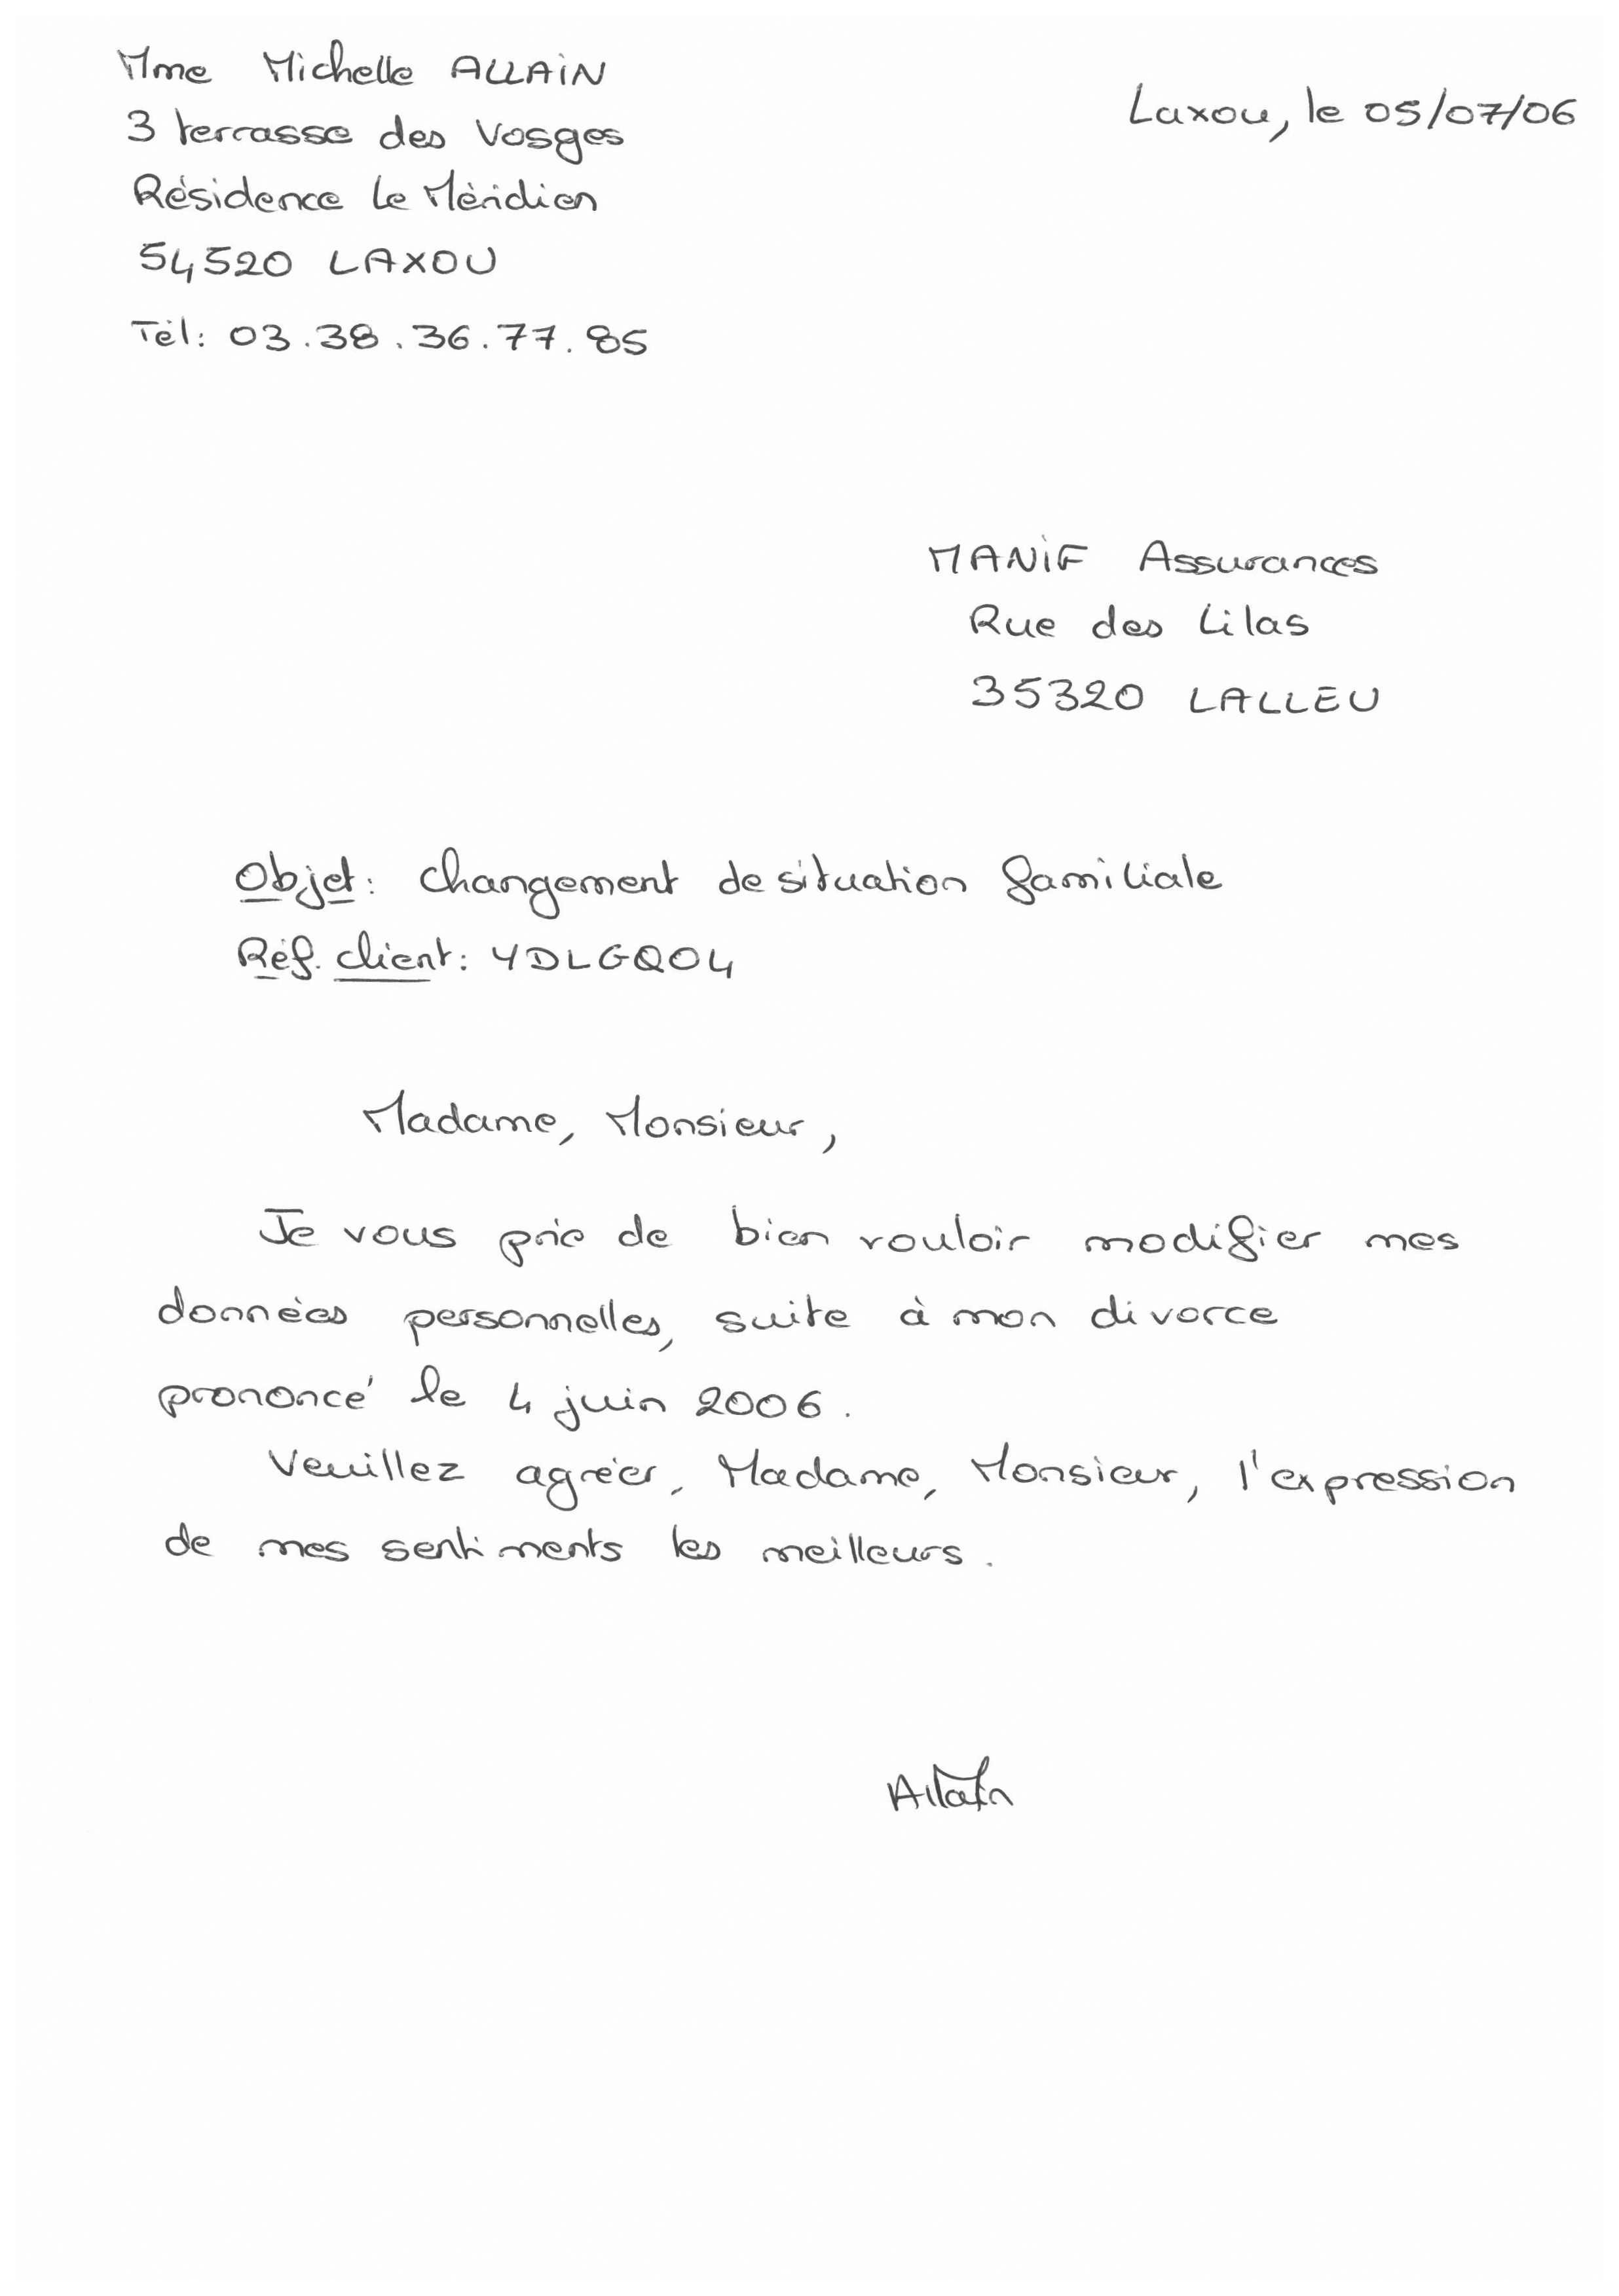 Mme Michelle ALLAIN
3 terrasse des Vosges
Résidence Le Méridien
54520 LAXOU
Tél: 03.38.36.77.85
Laxou, le 05/07/06
MANIF Assurances
Rue des Lilas
35320 LALLEU
Objet: changement de situation familiale
Réf. client: YDLGQ04
Madame, Monsieur,
Je vous prie de bien vouloir modifier mes
données personnelles, suite à mon divorce
prononcé le 4 juin 2006.
Veuillez agréer, Madame, Monsieur, l'expression
de mes sentiments les meilleurs.
Allain